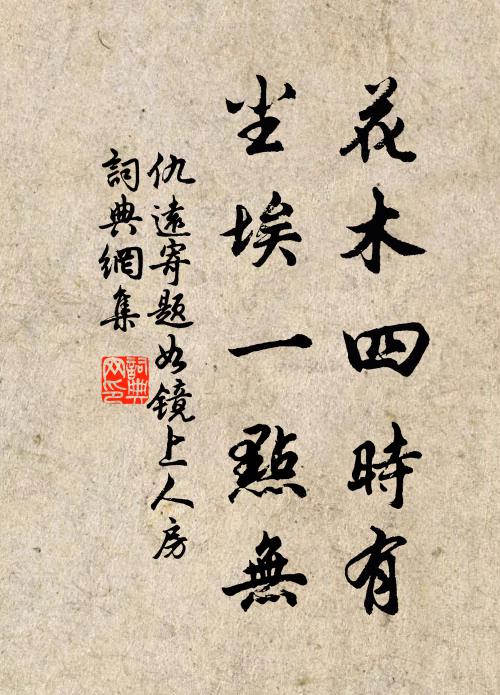 花木四時有
尘埃一點無
仇遠寄題如鏡上人房
詞典網集
詞典
网印